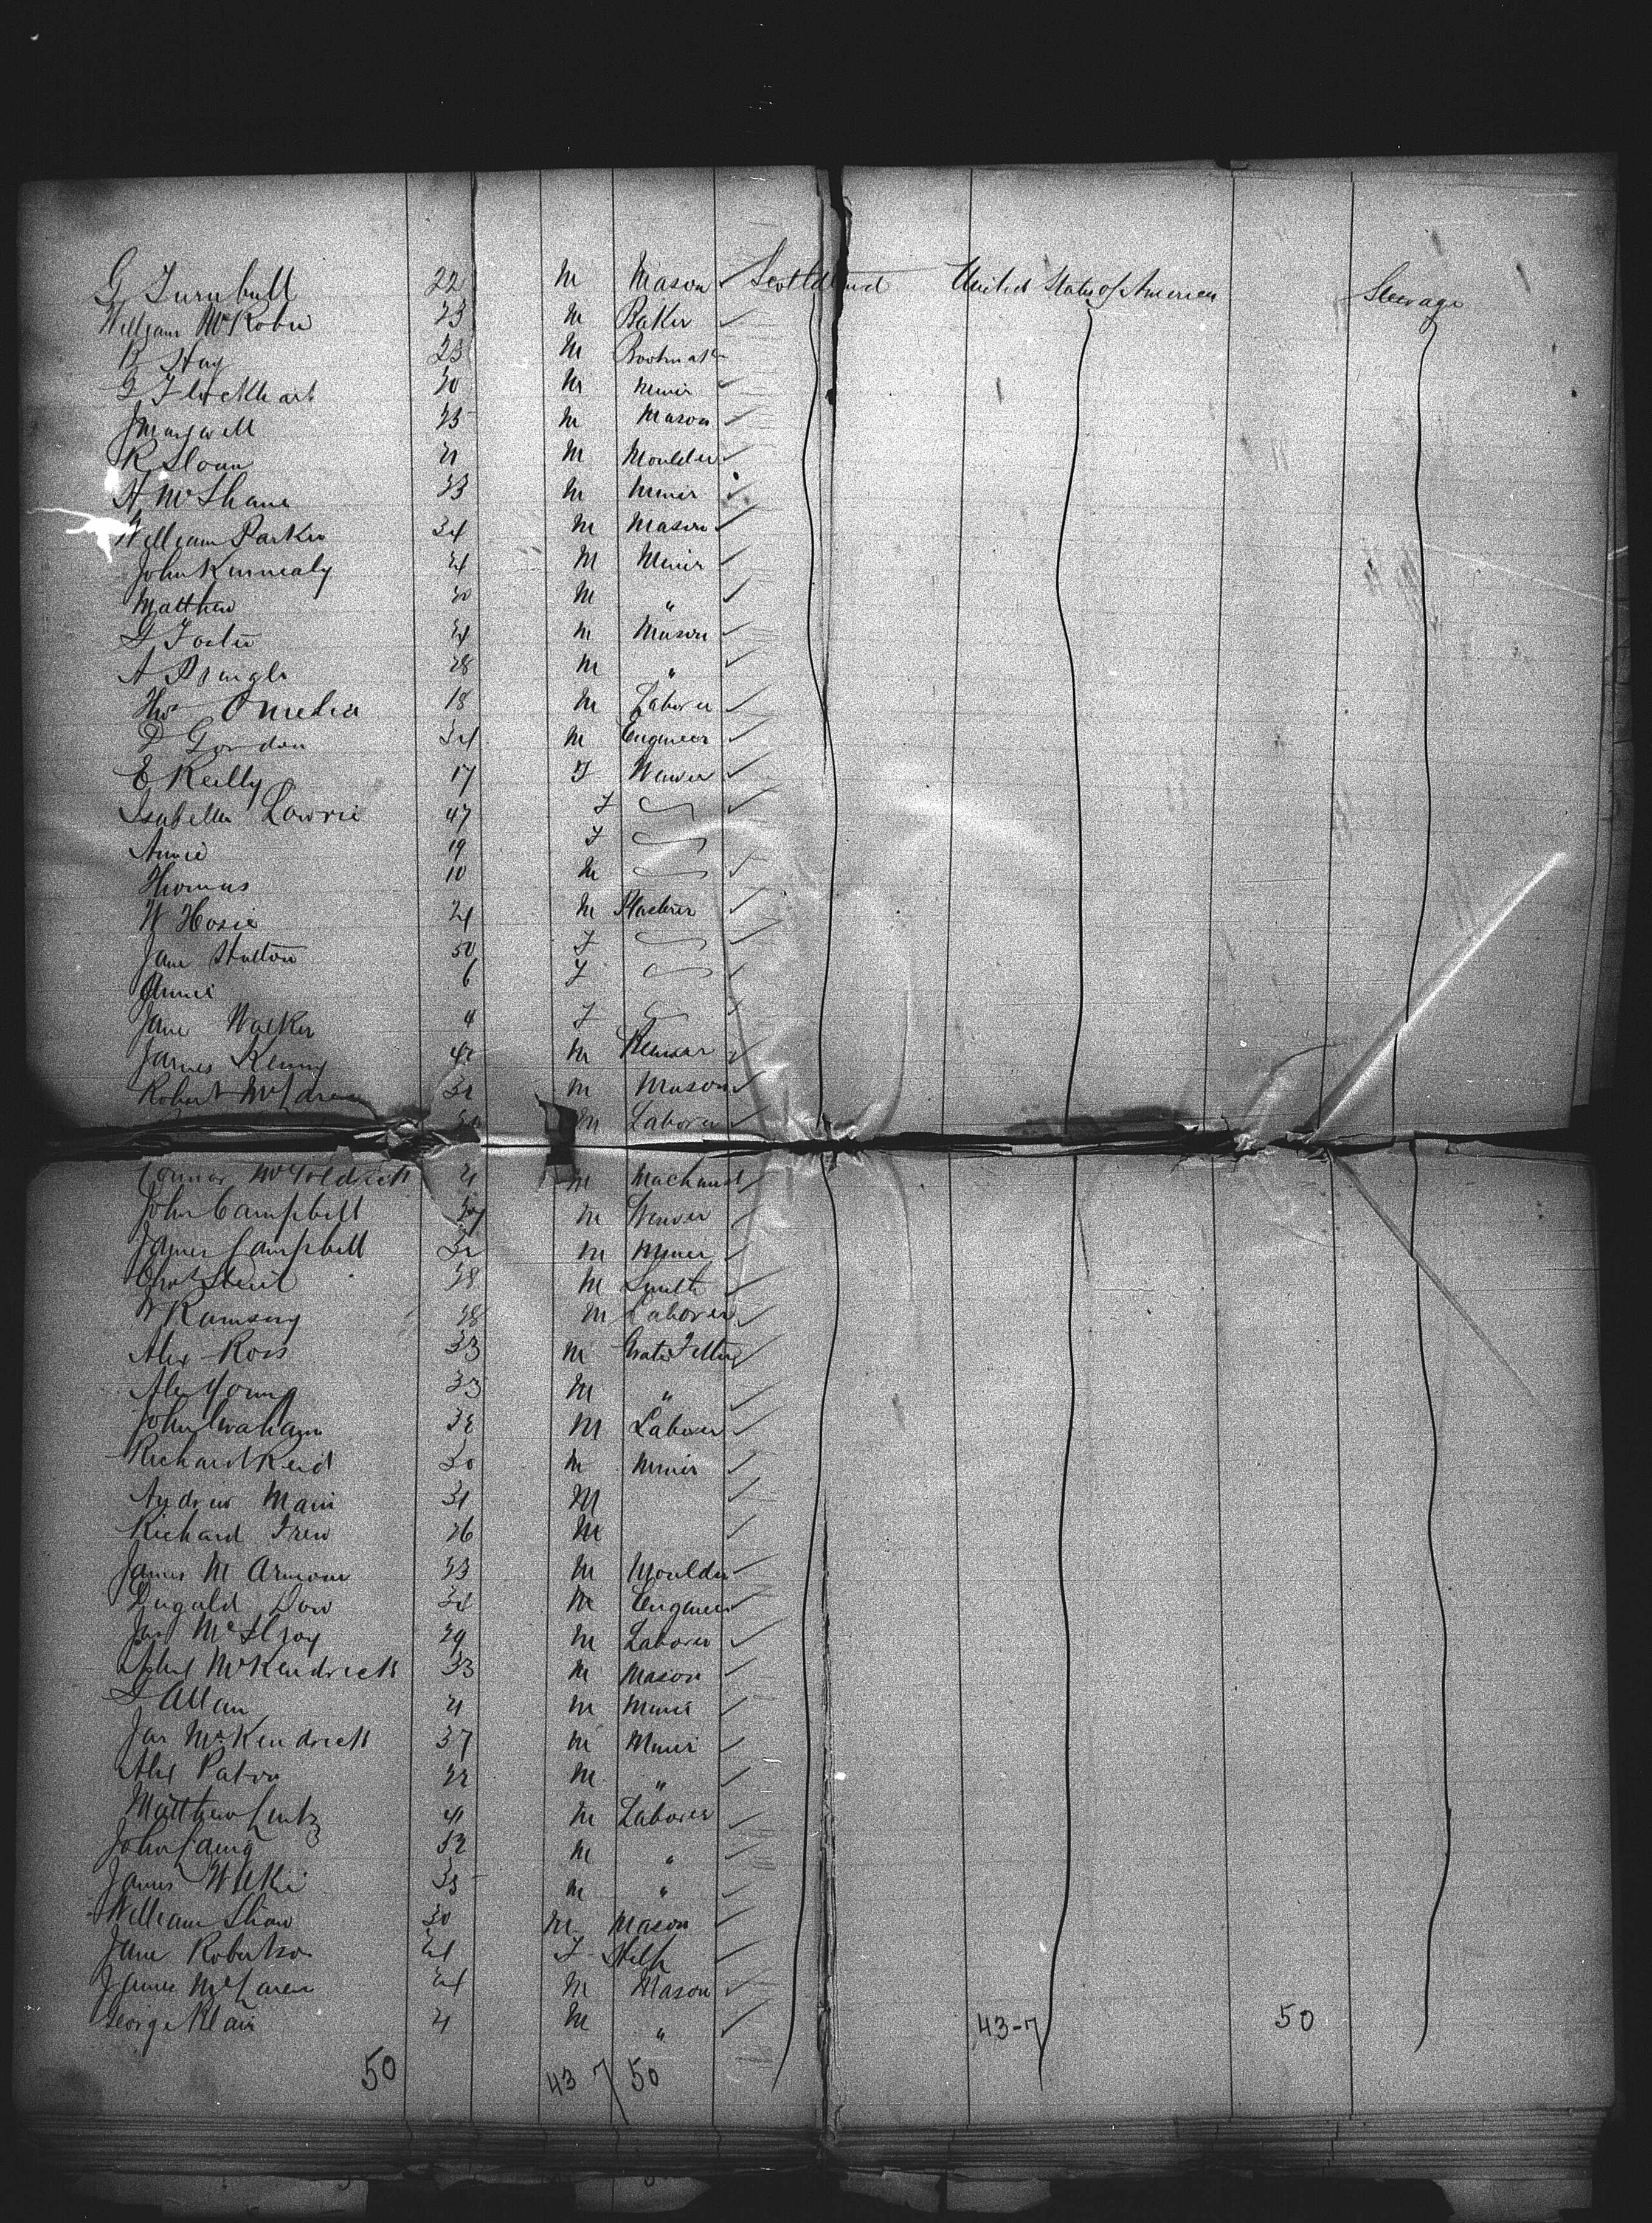 G Turnbull 22 M Mason ✓ Scotland United States of America Steerage
William McRobie 23 M Baker ✓
R Hay 23 M Bootmak
G Flockhart 30 M Miner ✓
J Maxwell 25 M Mason ✓
R Sloan 21 M Moulder ✓
H McShane 23 M Miner ✓
William Parker 34 M Mason ✓
John Kennealy 24 M Miner ✓
Matthew 20 M " ✓
G Foster 24 M Mason ✓
A Pringle 28 M " ✓
Thos Omelia 18 M Laborer ✓
D Gordon 34 M Engineer ✓
E Reilly 17 F Weaver ✓
Isabella Lowrie 47 F ✓
Annie 19 F
Thomas 10 M ✓
W Hosie 24 M Plasterer ✓
Jane Hutton 50 F ✓
Annie 6 F ✓
Jane Walker 4 F ✓
James Kenny 42 M ✓
Robert 32 M Mason ✓
M Laborer ✓
McGoldrick 21 M Machinist ✓
John Campbell M Weaver ✓
James Campbell 32 M Miner ✓
28 M Smith ✓
W Ramsay 28 M Laborer ✓
Alex Ross 33 M Grate Fitter ✓
Alex Young 33 M " ✓
John Graham 32 M Laborer ✓
Richard Reid 30 M Miner ✓
Andrew Main 31 M ✓
Richard Frew 26 M ✓
James M Armour 23 M Moulder ✓
Dugald Dow 32 M Engineer ✓
Jas McIlroy 29 M Laborer ✓
McKendrick 33 M Mason ✓
Allan 21 M Miner ✓
Jas McKendrick 37 M Miner ✓
Alex Paton 22 M " ✓
Matthew 41 M Laborer ✓
John Laing 32 M " ✓
James Wilkie 35 M " ✓
William Shaw 30 M Mason ✓
Jane Robertson 24 F Help ✓
James McLaren 24 M Mason ✓
George 21 M " ✓ 43-7 50
50 43 7 50